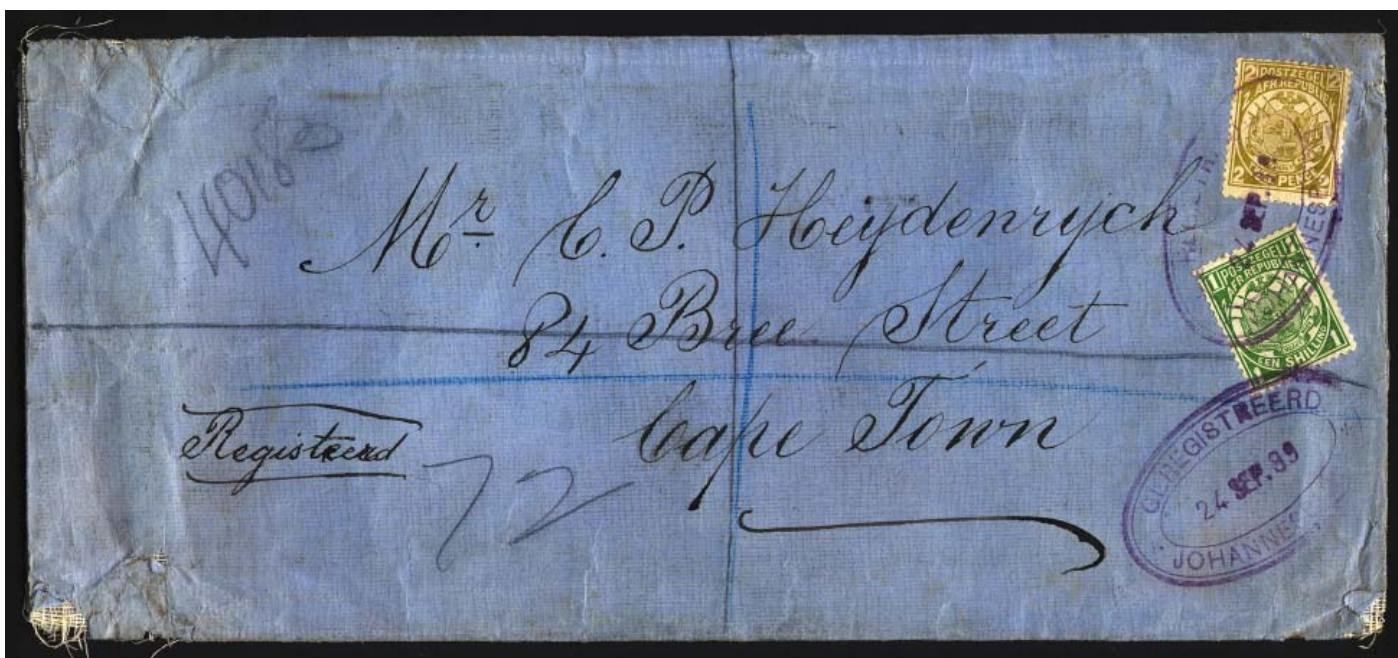 40183
Mr C. P. Heydenrych
84 Bree Street
Cape Town
Registeerd
72
2 POSTZEGEL 2
AFR. REPUBLIEK
2 PENCE 2
SEP.
1 POSTZEGEL 1
AFR. REPUBLIEK
EEN SHILLING 1
GEREGISTREERD
24 SEP. 89
JOHANNES